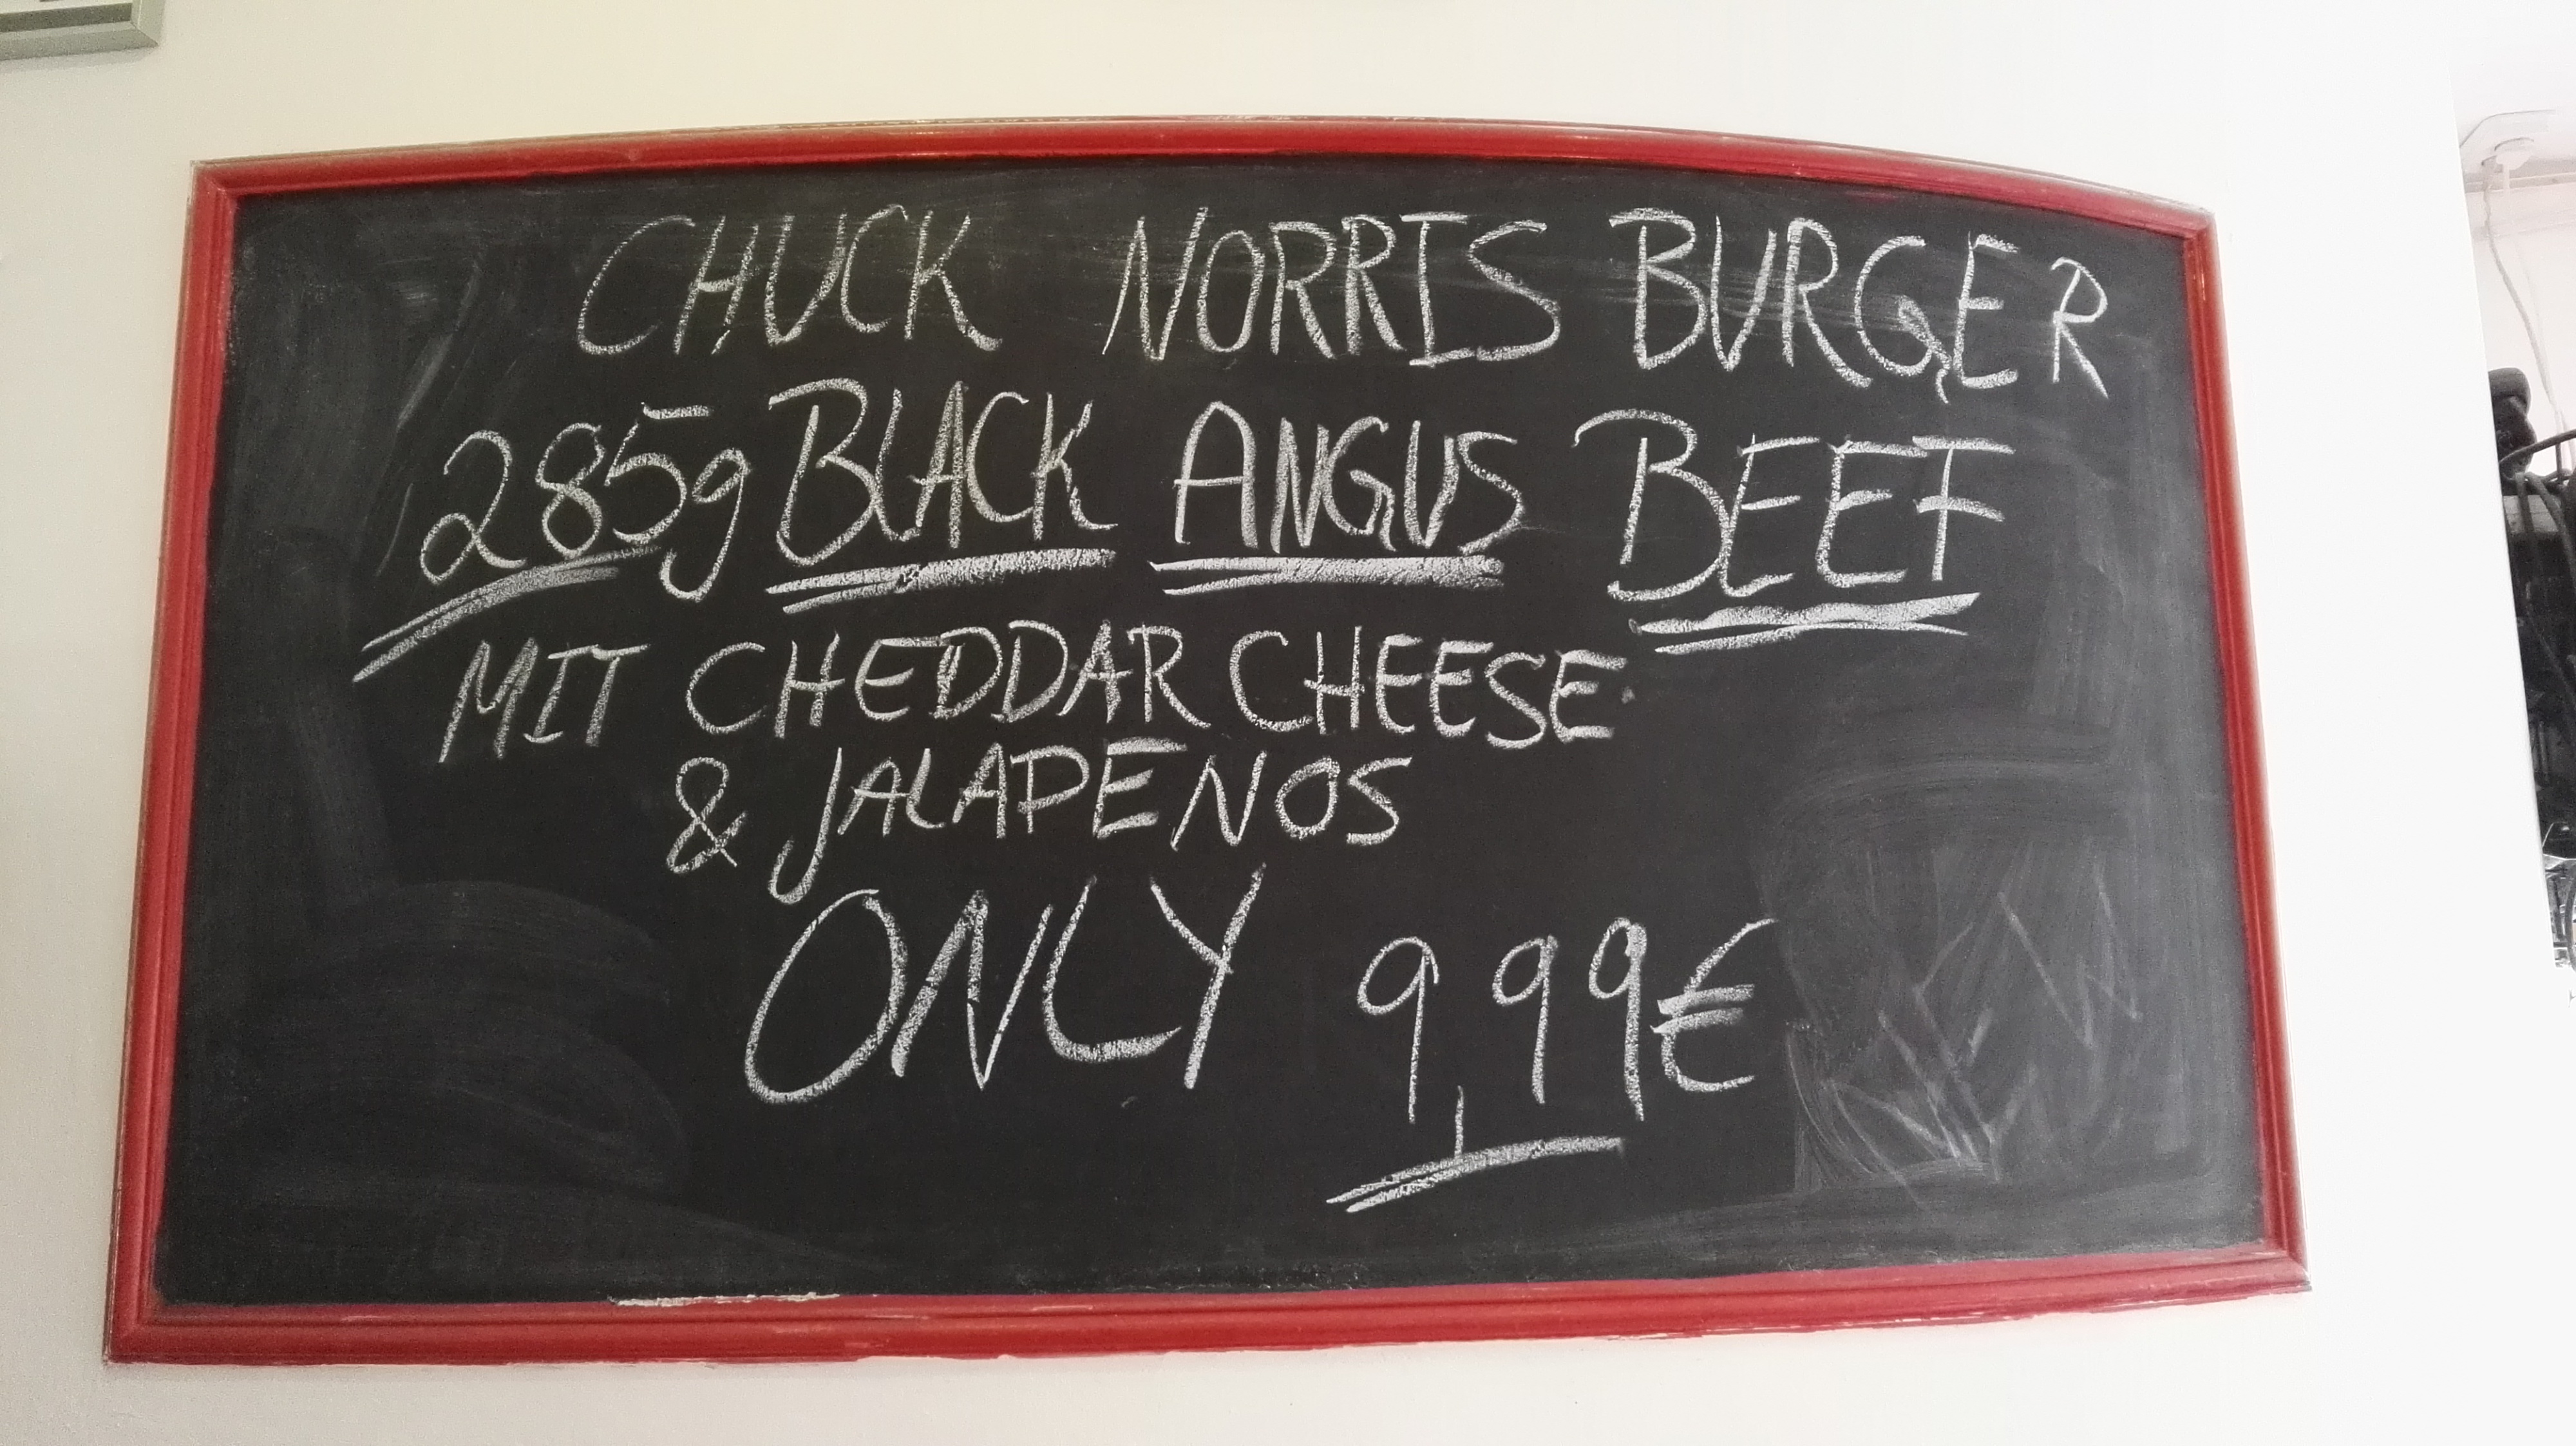 CHUCK NORRIS BURGER
285g BLACK ANGUS BEEF
MIT CHEDDAR CHEESE
& JALAPENOS
ONLY 9,99€